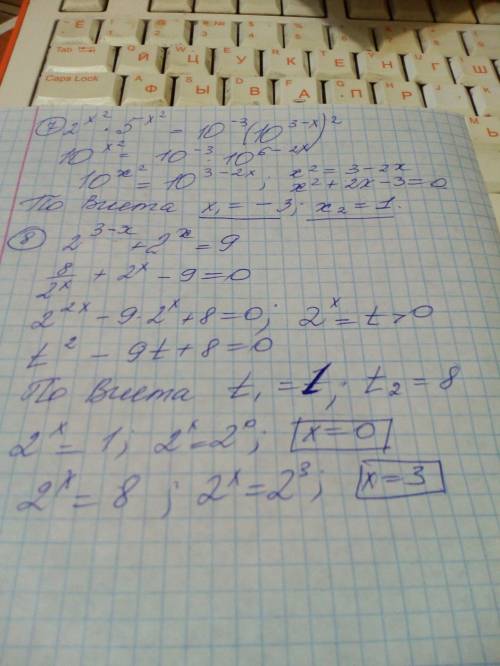 Ё ! 1 " 2 №
Tab Й Ц У К Е Н Г Ш
Caps Lock Ф Ы В А П Р
⑦ 2^{x^2} · 5^{x^2} = 10^{-3}(10^{3-x})^2
10^{x^2} = 10^{-3} · 10^{6-2x}
10^{x^2} = 10^{3-2x}; x^2 = 3-2x
x^2+2x-3=0
По Виета x_1 = -3; x_2 = 1.
⑧ 2^{3-x} + 2^x = 9
8/2^x + 2^x - 9 = 0
2^{2x} - 9·2^x + 8 = 0; 2^x = t > 0
t^2 - 9t + 8 = 0
По Виета t_1 = 1; t_2 = 8
2^x = 1; 2^x = 2^0; x = 0
2^x = 8; 2^x = 2^3; x = 3